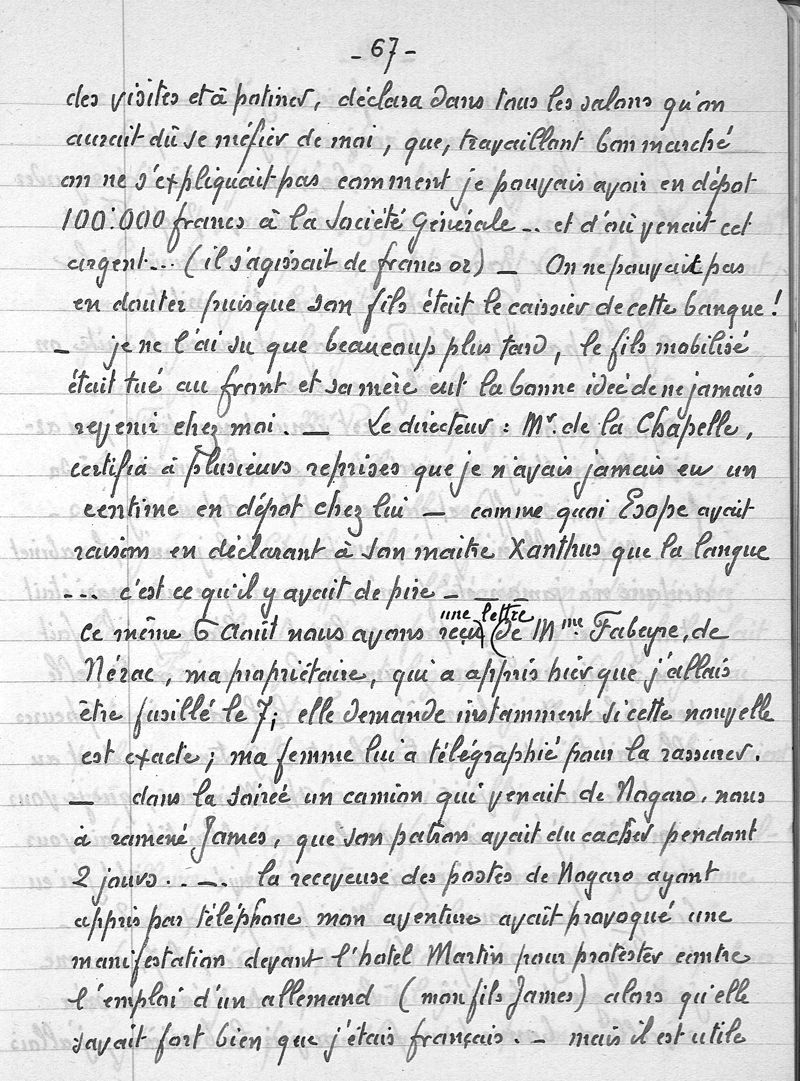 - 67 -
des visites et à potiner, déclara dans tous les salons qu'on
aurait dû se méfier de moi, que, travaillant bon marché
on ne s'expliquait pas comment je pouvais avoir en dépot
100.000 francs à la Société Générale... et d'où venait cet
argent... (il s'agissait de francs or) — On ne pouvait pas
en douter puisque son fils était le caissier de cette banque!
— je ne l'ai su que beaucoup plus tard, le fils mobilisé
était tué au front et sa mère eut la bonne idée de ne jamais
revenir chez moi. — Le directeur: Mr. de la Chapelle,
certifia à plusieurs reprises que je n'avais jamais eu un
centime en dépot chez lui — comme quoi Esope avait
raison en déclarant à son maitre Xanthus que la langue
... c'est ce qu'il y avait de pire — —
une lettre
Ce même 6 Août nous avons reçu de Mme. Fabeyre, de
Nérac, ma propriétaire, qui a appris hier que j'allais
être fusillé le 7; elle demande instamment si cette nouvelle
est exacte; ma femme lui a télégraphié pour la rassurer.
— dans la soireé un camion qui venait de Nogaro, nous
à ramené James, que son patron avait du cacher pendant
2 jours. . —. la receveuse des postes de Nogaro ayant
appris par téléphone mon aventure avait provoqué une
manifestation devant l'hotel Martin pour protester contre
l'emploi d'un allemand (mon fils James) alors qu'elle
savait fort bien que j'étais français. — mais il est utile